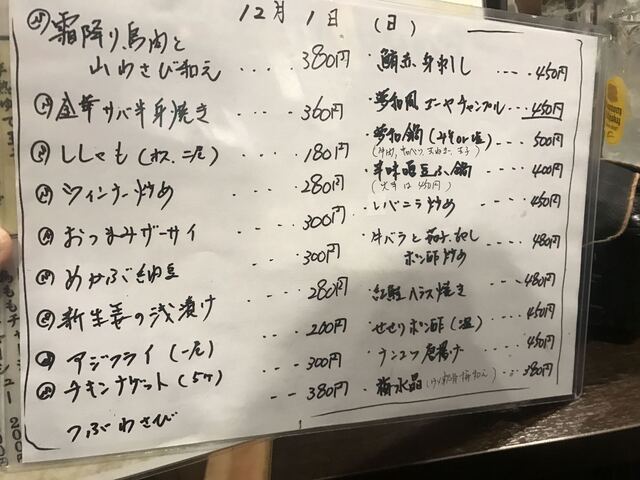 12月 1日 (日)
霜降り鳥肉と
山わさび和え ‥‥ 380円
金華サバ半身焼き ‥‥ 360円
ししゃも (オス、二尾) ‥‥ 180円
ウィンナー炒め ‥‥ 280円
おつまみザーサイ ‥‥ 300円
めかぶ納豆 ‥‥ 300円
新生姜の浅漬け ‥‥ 280円
アジフライ (一尾) ‥‥ 200円
チキンナゲット (5ヶ) ‥‥ 300円
つぶわさび ‥‥ 380円
・鯨赤身刺し ‥‥ 450円
・夢和風ゴーヤチャンプル ‥‥ 450円
・夢和鍋 (みそor塩) ‥‥ 500円
・辛味噌豆ふ鍋 ‥‥ 400円
(大辛は 450円)
・レバニラ炒め ‥‥ 450円
・牛バラと茄子、おろし
ポン酢炒め ‥‥ 480円
・紅鮭ハラス焼き ‥‥ 480円
・せせりポン酢 (温) ‥‥ 450円
・ナンコツ唐揚げ ‥‥ 450円
・梅水晶 ‥‥ 380円